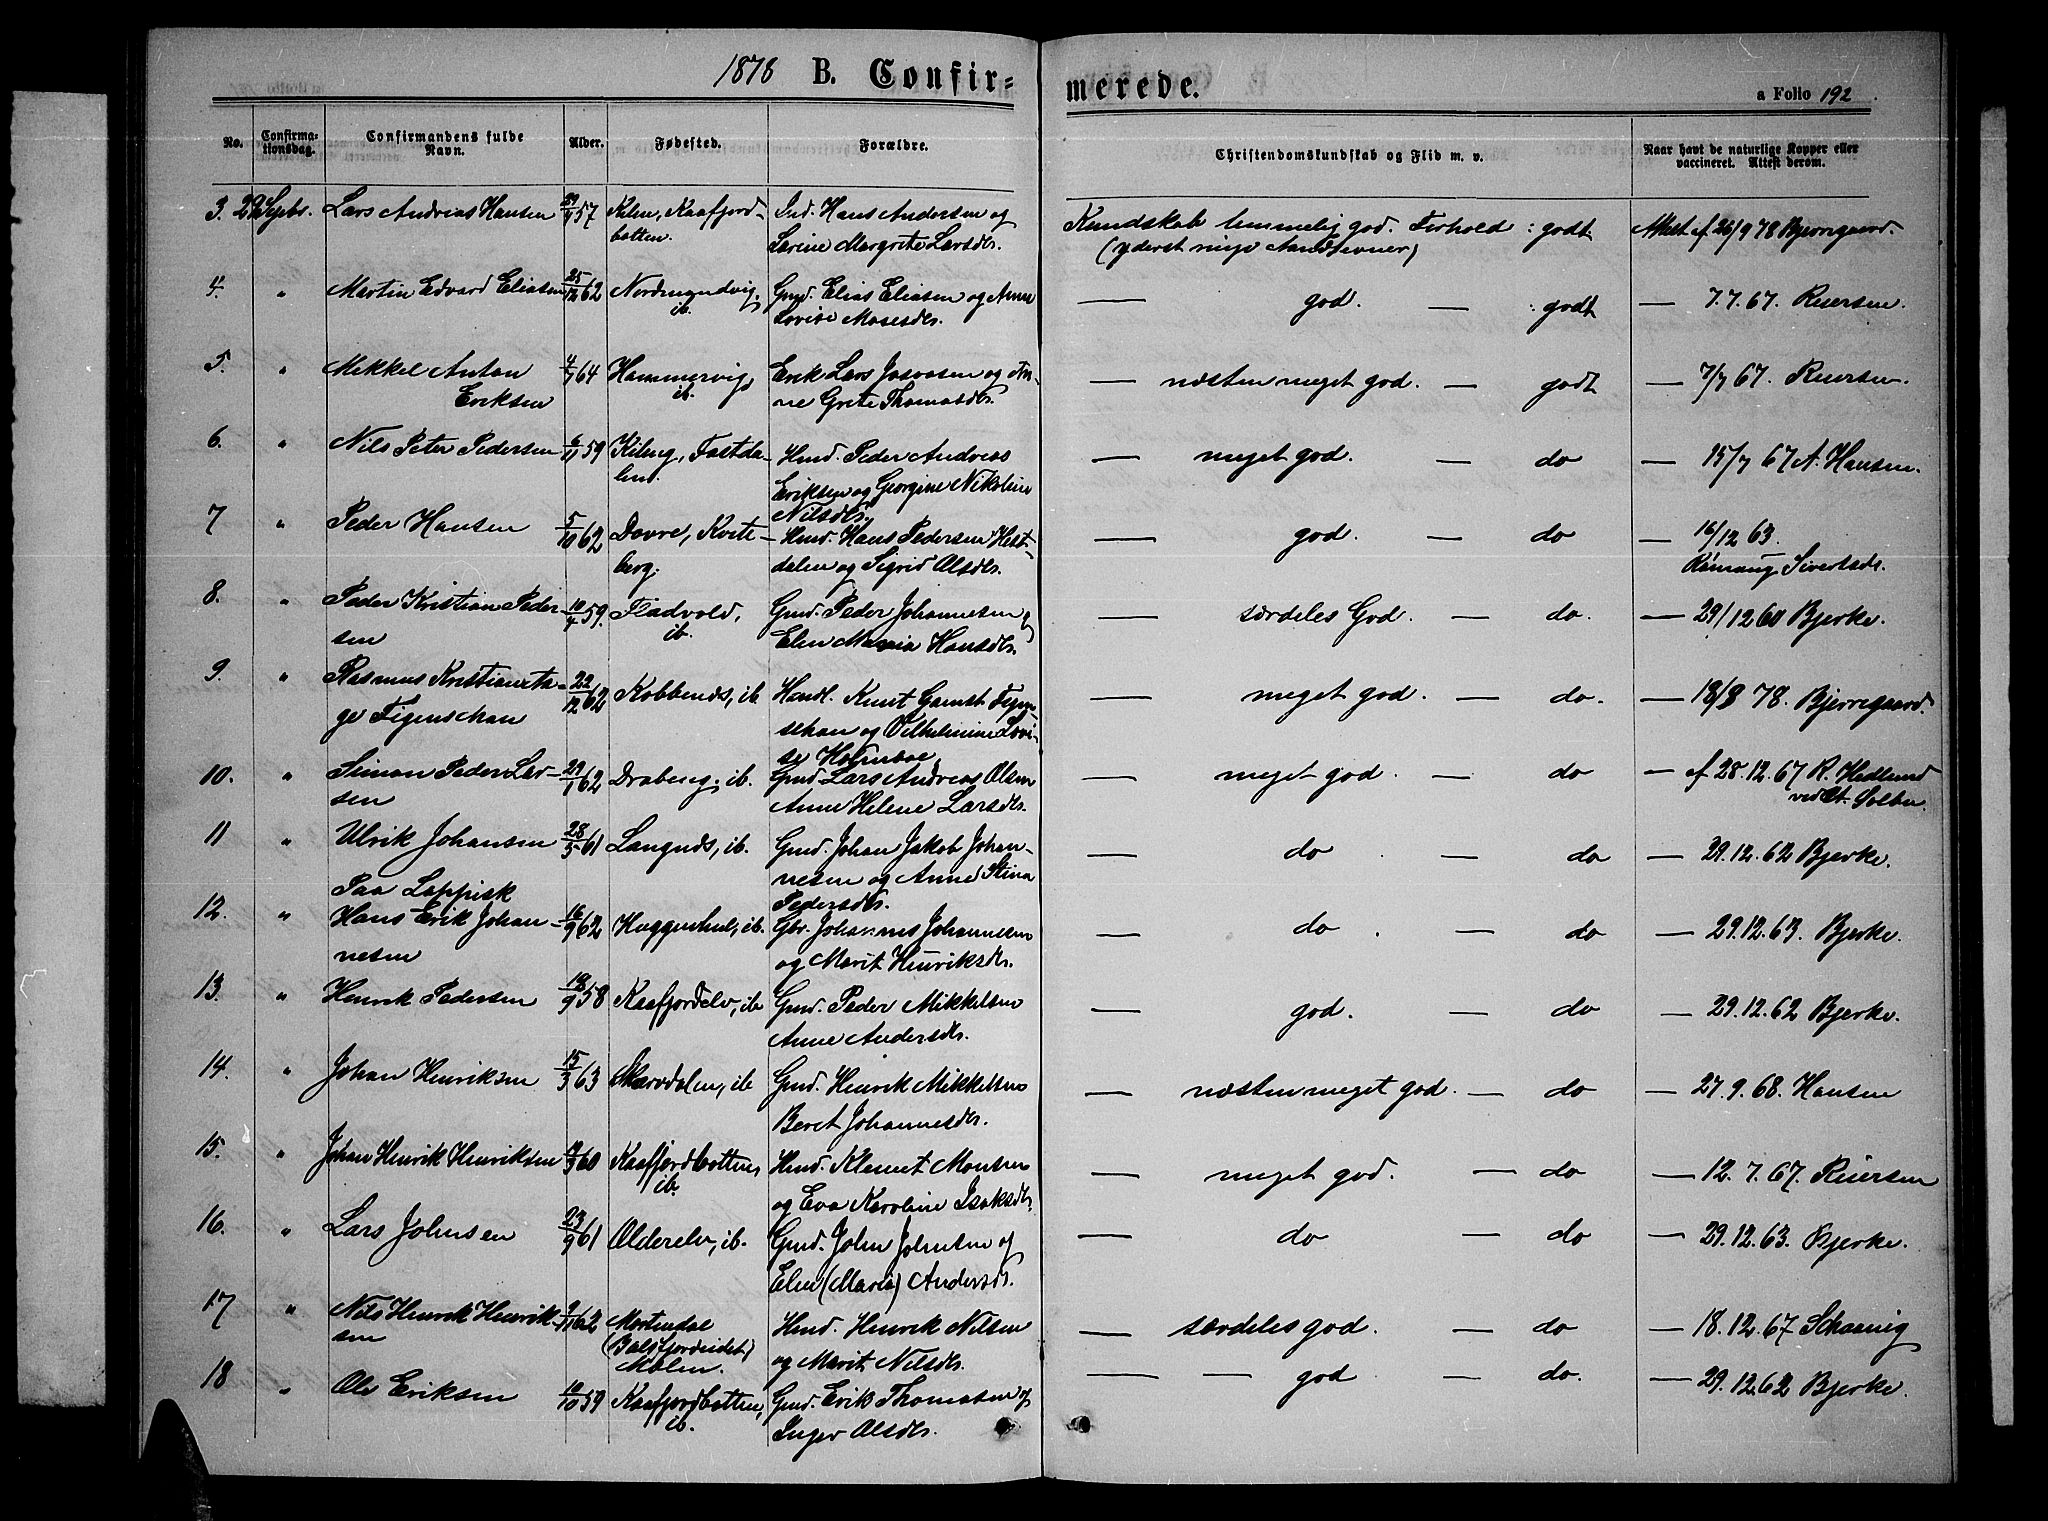 1878 B. Confirmerede. a Folio 192
No. Confirmationsdag. Confirmandens fulde Navn. Alder. Fødested. Forældre. Christendomskundskab og Flid m. v. Naar havt de naturlige Kopper eller vaccineret. Attest derom.
3. 29 Sepbr. Lars Andreas Hansen 57 Kilen, Kaafjord- Ind. Hans Andersen og Kundskab temmelig god. Forhold : godt Attest af 26/9 78 Bjerregaard.
botten. Sarine Margrete Larsdr. (yderst ringe Aandsevner)
4. " Martin Edvard Eliasen 25/12 62 Nordmandvig, Gmd. Elias Eliasen og Anne — god. — : godt — 7.7.67. Kiersen.
ib. Lovise Mosesdr.
5. " Mikkel Anton 4/7 64 Hammervig, Erik Lars Josvasen og An- — næsten meget god. — godt — 7/7 67. Kiersen.
Eriksen ib. ne Grete Thomasdr.
6. " Nils Peter Pedersen 6/11 59 Kileng, Fastda- Hmd. Peder Andreas — meget god. — do — 15/7 67 A. Hansen.
len. Eriksen og Georgine Nikoline
Nilsdr.
7 " Peder Hansen 5/10 62 Dovre, Kvite- Hmd. Hans Pedersen Hest- — god. — do — 16/12 63.
berg. dalen og Sigrid Olsdr. Sivertsdr.
8. " Peder Kristian Peder- 10/4 59. Fladvold, Gmd. Peder Johannesen og — særdeles God. — do. — 29/12 60 Bjerke.
sen ib. Elen Maria Hansdr.
9. " Rasmus Kristian Ta- 22/12 62 Kobbenes, ib. Handl. Knut Gamst Figen- — meget god. — do. — 18/8 78. Bjerregaard.
ge Figenschau schau og Vilhelmine Lovi-
se Holmboe
10. " Simon Peder Lar- 29/1 62 Drabeng, ib. Gmd Lars Andreas Olsen — meget god. — do — af 28.12.67 R. Hedlund
sen Anne Helene Larsdr.
11 " Ulrik Johansen 28/5 61 Langnes, ib. Gmd. Johan Jakob Johan- — do. — do — 29.12.62 Bjerke.
nesen og Anne Stina
Paa Lappisk Pedersdr.
12. " Hans Erik Johan- 16/9 62 Huggenhul, ib. Gbr. Johannes Johannesen — do. — do — 29.12.63. Bjerke.
nesen og Marit Henriksdr.
13. " Henrik Pedersen 19/9 58 Kaafjordelv, ib Gmd. Peder Mikkelsen — god. — do — 29.12.62 Bjerke.
Anne Andersdr.
14. " Johan Henriksen 15/3 63 Skarvdalen, ib Gmd. Henrik Mikkelsen — næsten meget god. — do — 27.9.68. Hansen
Beret Johannesdr.
15. " Johan Henrik Henriksen 60 Kaafjordbotten, Hmd. Klemet Monsen — meget god. — do — 12.7.67. Kiersen
ib. og Eva Karoline Isaksdr.
16. " Lars Johnsen 23/9 61 Olderelv, ib. Gmd. John Johnsen og — do — do — 29.12.63. Bjerke.
Elen (Maria) Andersdr.
17 " Nils Henrik Henrik- 9/11 62 Mortendal Hmd. Henrik Nilsen — særdeles god. — do — 18.12.67 Schaanig
sen (Balsfjordeidet) og Marit Nilsdr.
Molen.
18 " Ole Eriksen 10/10 59 Kaafjordbotten, Gmd. Erik Thomasen og — — god — do. — 29.12.62 Bjerke.
ib. Inger Olsdr.